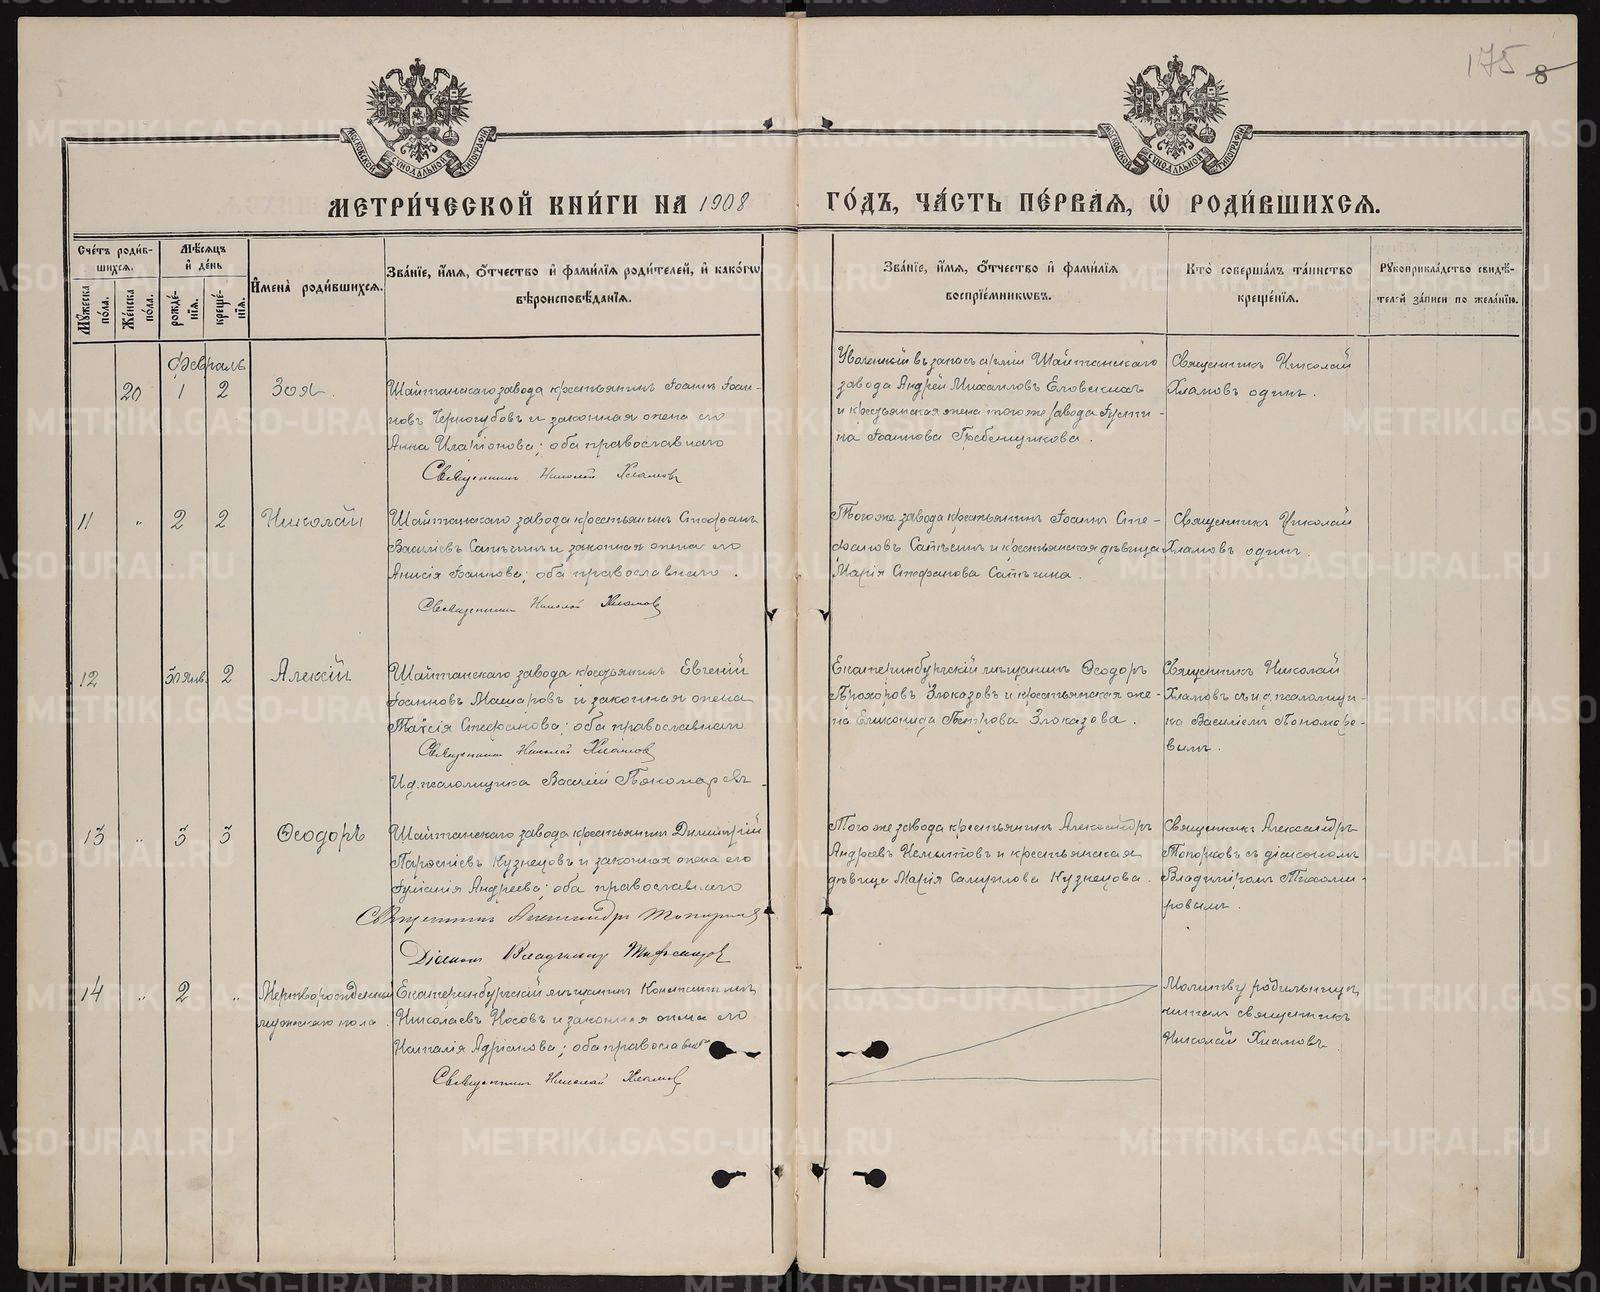 175 8
МОСКОВСКОЙ СѴНОДАЛЬНОЙ ТИПОГРАФІИ
МОСКОВСКОЙ СѴНОДАЛЬНОЙ ТИПОГРАФІИ
МЕТРИ́ЧЕСКОЙ КНИ́ГИ НА 1908
ГО́ДЪ, ЧА́СТЬ ПЕ́РВАЯ, Ѡ҆ РОДИ́ВШИХСѦ.
Сче́тъ роди́в-
шихсѧ.
Мꙋ́жеска по́ла.
Же́нска по́ла.
Мѣ́сѧцъ
и҆ де́нь
рожде́-
нїѧ.
креще́-
нїѧ.
И҆мена̀ роди́вшихсѧ.
Зва́нїе, и҆́мѧ, ѻ҆́тчество и҆ фами́лїѧ роди́телей, и҆ како́гѡ
вѣроисповѣ́данїѧ.
Зва́нїе, и҆́мѧ, ѻ҆́тчество и҆ фами́лїѧ
воспрїе́мникѡвъ.
Кто̀ соверша́лъ та́инство
креще́нїѧ.
Рꙋкоприкла́дство свидѣ́-
телей за́писи по жела́нїю.
Февраль
20 1 2 Зоя.
Шайтанскаго завода крестьянинъ Іоаннъ Іоан-
новъ Черногубовъ и законная жена его
Анна Иларіонова; оба православнаго
Священникъ Николай Хламовъ
Уволенный въ запасъ арміи Шайтанскаго
завода Андрей Михаиловъ Еловскихъ
и крестьянская жена того же завода Іусти-
на Іоаннова Гребенщикова.
Священникъ Николай
Хламовъ одинъ.
11 " 2 2 Николай
Шайтанскаго завода крестьянинъ Стефанъ
Василіевъ Сапѣгинъ и законная жена его
Анисія Іоаннова; оба православнаго.
Священникъ Николай Хламовъ
Того же завода крестьянинъ Іоаннъ Сте-
фановъ и крестьянская дѣвица
Марія Стефанова
Священникъ Николай
Хламовъ одинъ.
12 2 Алексій
Шайтанскаго завода крестьянинъ Евгеній
Іоанновъ Макаровъ и законная жена
Таисія Стефанова; оба православнаго
Священникъ Николай Хламовъ
И.д. псаломщика Василій Пономаревъ.
Екатеринбургскій мѣщанинъ Ѳеодоръ
Прохоровъ Злоказовъ и крестьянская же-
на Елисонида Петрова Злоказова.
Священникъ Николай
Хламовъ съ и.д. псаломщи-
ка Василіемъ Пономаре-
вымъ.
13 " 3 3 Ѳеодоръ
Шайтанскаго завода крестьянинъ Димитрій
Парѳеніевъ Кузнецовъ и законная жена его
Іуліанія Андреева; оба православнаго
Священникъ Александръ Топорковъ
Діаконъ Владиміръ Тихомировъ
Того же завода крестьянинъ Александръ
Андреевъ и крестьянская
дѣвица Марія Самуилова Кузнецова.
Священникъ Александръ
Топорковъ съ діакономъ
Владиміромъ Тихоми-
ровымъ.
14 " 2 " Мертворожденный
мужскаго пола.
Екатеринбургскій мѣщанинъ Константинъ
Николаевъ Носовъ и законная жена его
Наталія Адріанова; оба православнаго
Священникъ Николай Хламовъ
Молитву родильницѣ
читалъ священникъ
Николай Хламовъ.
METRIKI.GASO-URAL.RU